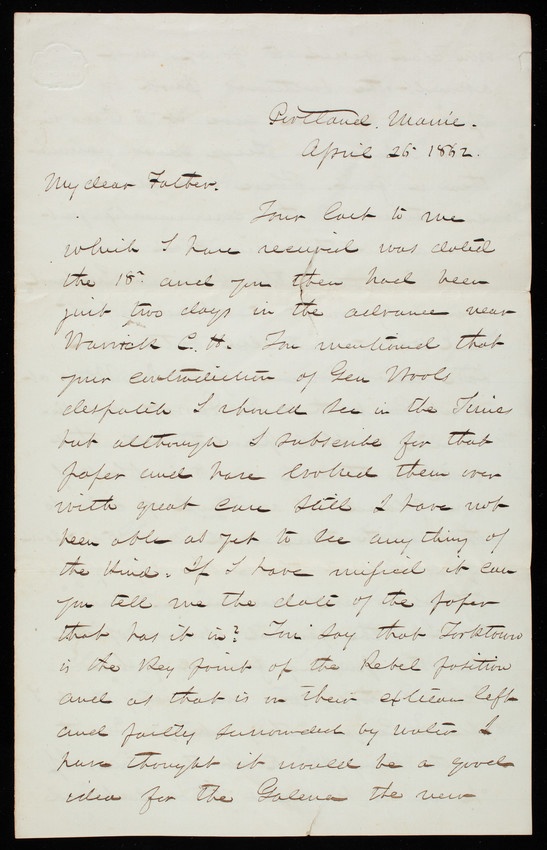 Portland, Maine.
April 26 1862.
My dear Father.
Your last to me
which I have received was dated
the 18th and you then had been
just two days in the advance near
Warwick C. H. You mentioned that
your contradiction of Gen Wools
despatch I should see in the Times
but although I subscribe for that
paper and have looked them over
with great care still I have not
been able as yet to see any thing of
the kind. If I have missed it can
you tell me the date of the paper
that has it in? You say that Yorktown
is the key point of the Rebel position
and as that is on their extreme left
and partly surrounded by water I
have thought it would be a good
idea for the Galena the new